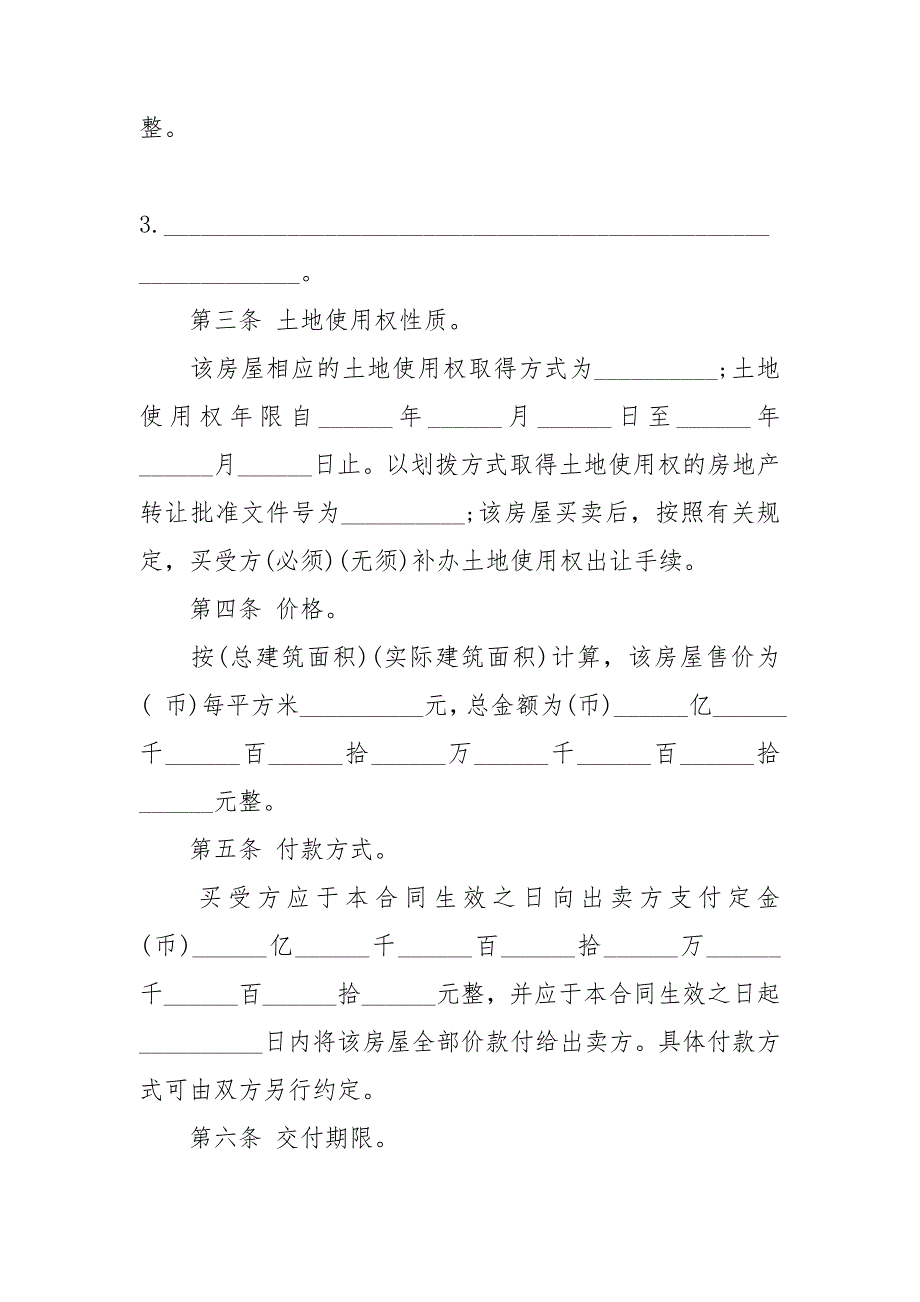 整。
3._________________________________________________
_____________。
第三条 土地使用权性质。
该房屋相应的土地使用权取得方式为__________;土地
使用权年限自______年______月______日至______年
______月______日止。以划拨方式取得土地使用权的房地产
转让批准文件号为__________;该房屋买卖后，按照有关规
定，买受方(必须)(无须)补办土地使用权出让手续。
第四条 价格。
按(总建筑面积)(实际建筑面积)计算，该房屋售价为
( 币)每平方米__________元，总金额为(币)______亿______
千______百______拾______万______千______百______拾
______元整。
第五条 付款方式。
买受方应于本合同生效之日向出卖方支付定金
(币)______亿______千______百______拾______万______
千______百______拾______元整，并应于本合同生效之日起
__________日内将该房屋全部价款付给出卖方。具体付款方
式可由双方另行约定。
第六条 交付期限。